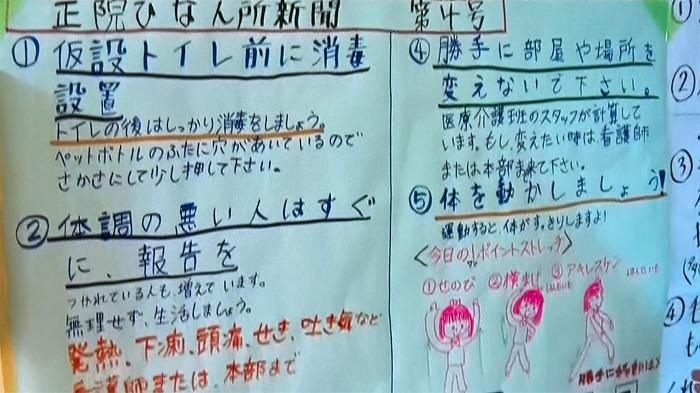 正院ひなん所新聞 第4号
① 仮設トイレ前に消毒
設置
トイレの後はしっかり消毒をしましょう。
ペットボトルのふたに穴があいているので
さかさにして少し押して下さい。
② 体調の悪い人はすぐ
に、報告を
つかれている人も、増えて います。
無理せず、生活しましょう。
発熱、下痢、頭痛、せき、吐き気など
看護師または、本部まで
④ 勝手に部屋や場所を
変えないで下さい。
医療介護班のスタッフが計算して
います。もし、変えたい時は、看護師
または本部まで来て下さい。
⑤ 体を動かしましょう!
運動すると、体がすっきりしますよ!
<今日の1ポイントストレッチ>
①せのび ②横まげ ③アキレスケン
①
②
③
④